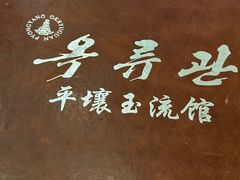 PYONGYANG OKRYUGUAN
옥류관
平壤玉流馆